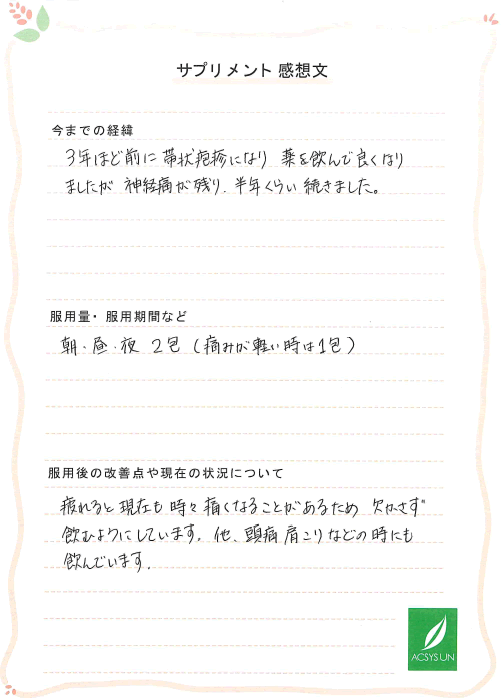 サプリメント 感想文
今までの経緯
3年ほど前に 帯状疱疹になり 薬を飲んで良くなり
ましたが 神経痛が残り、半年くらい 続きました。
服用量・服用期間など
朝・昼・夜 2包 (痛みが軽い時は1包)
服用後の改善点や現在の状況について
疲れると現在も時々痛くなることがあるため 欠かさず
飲むようにしています。他、頭痛 肩こりなどの時にも
飲んでいます.
ACSYSUN